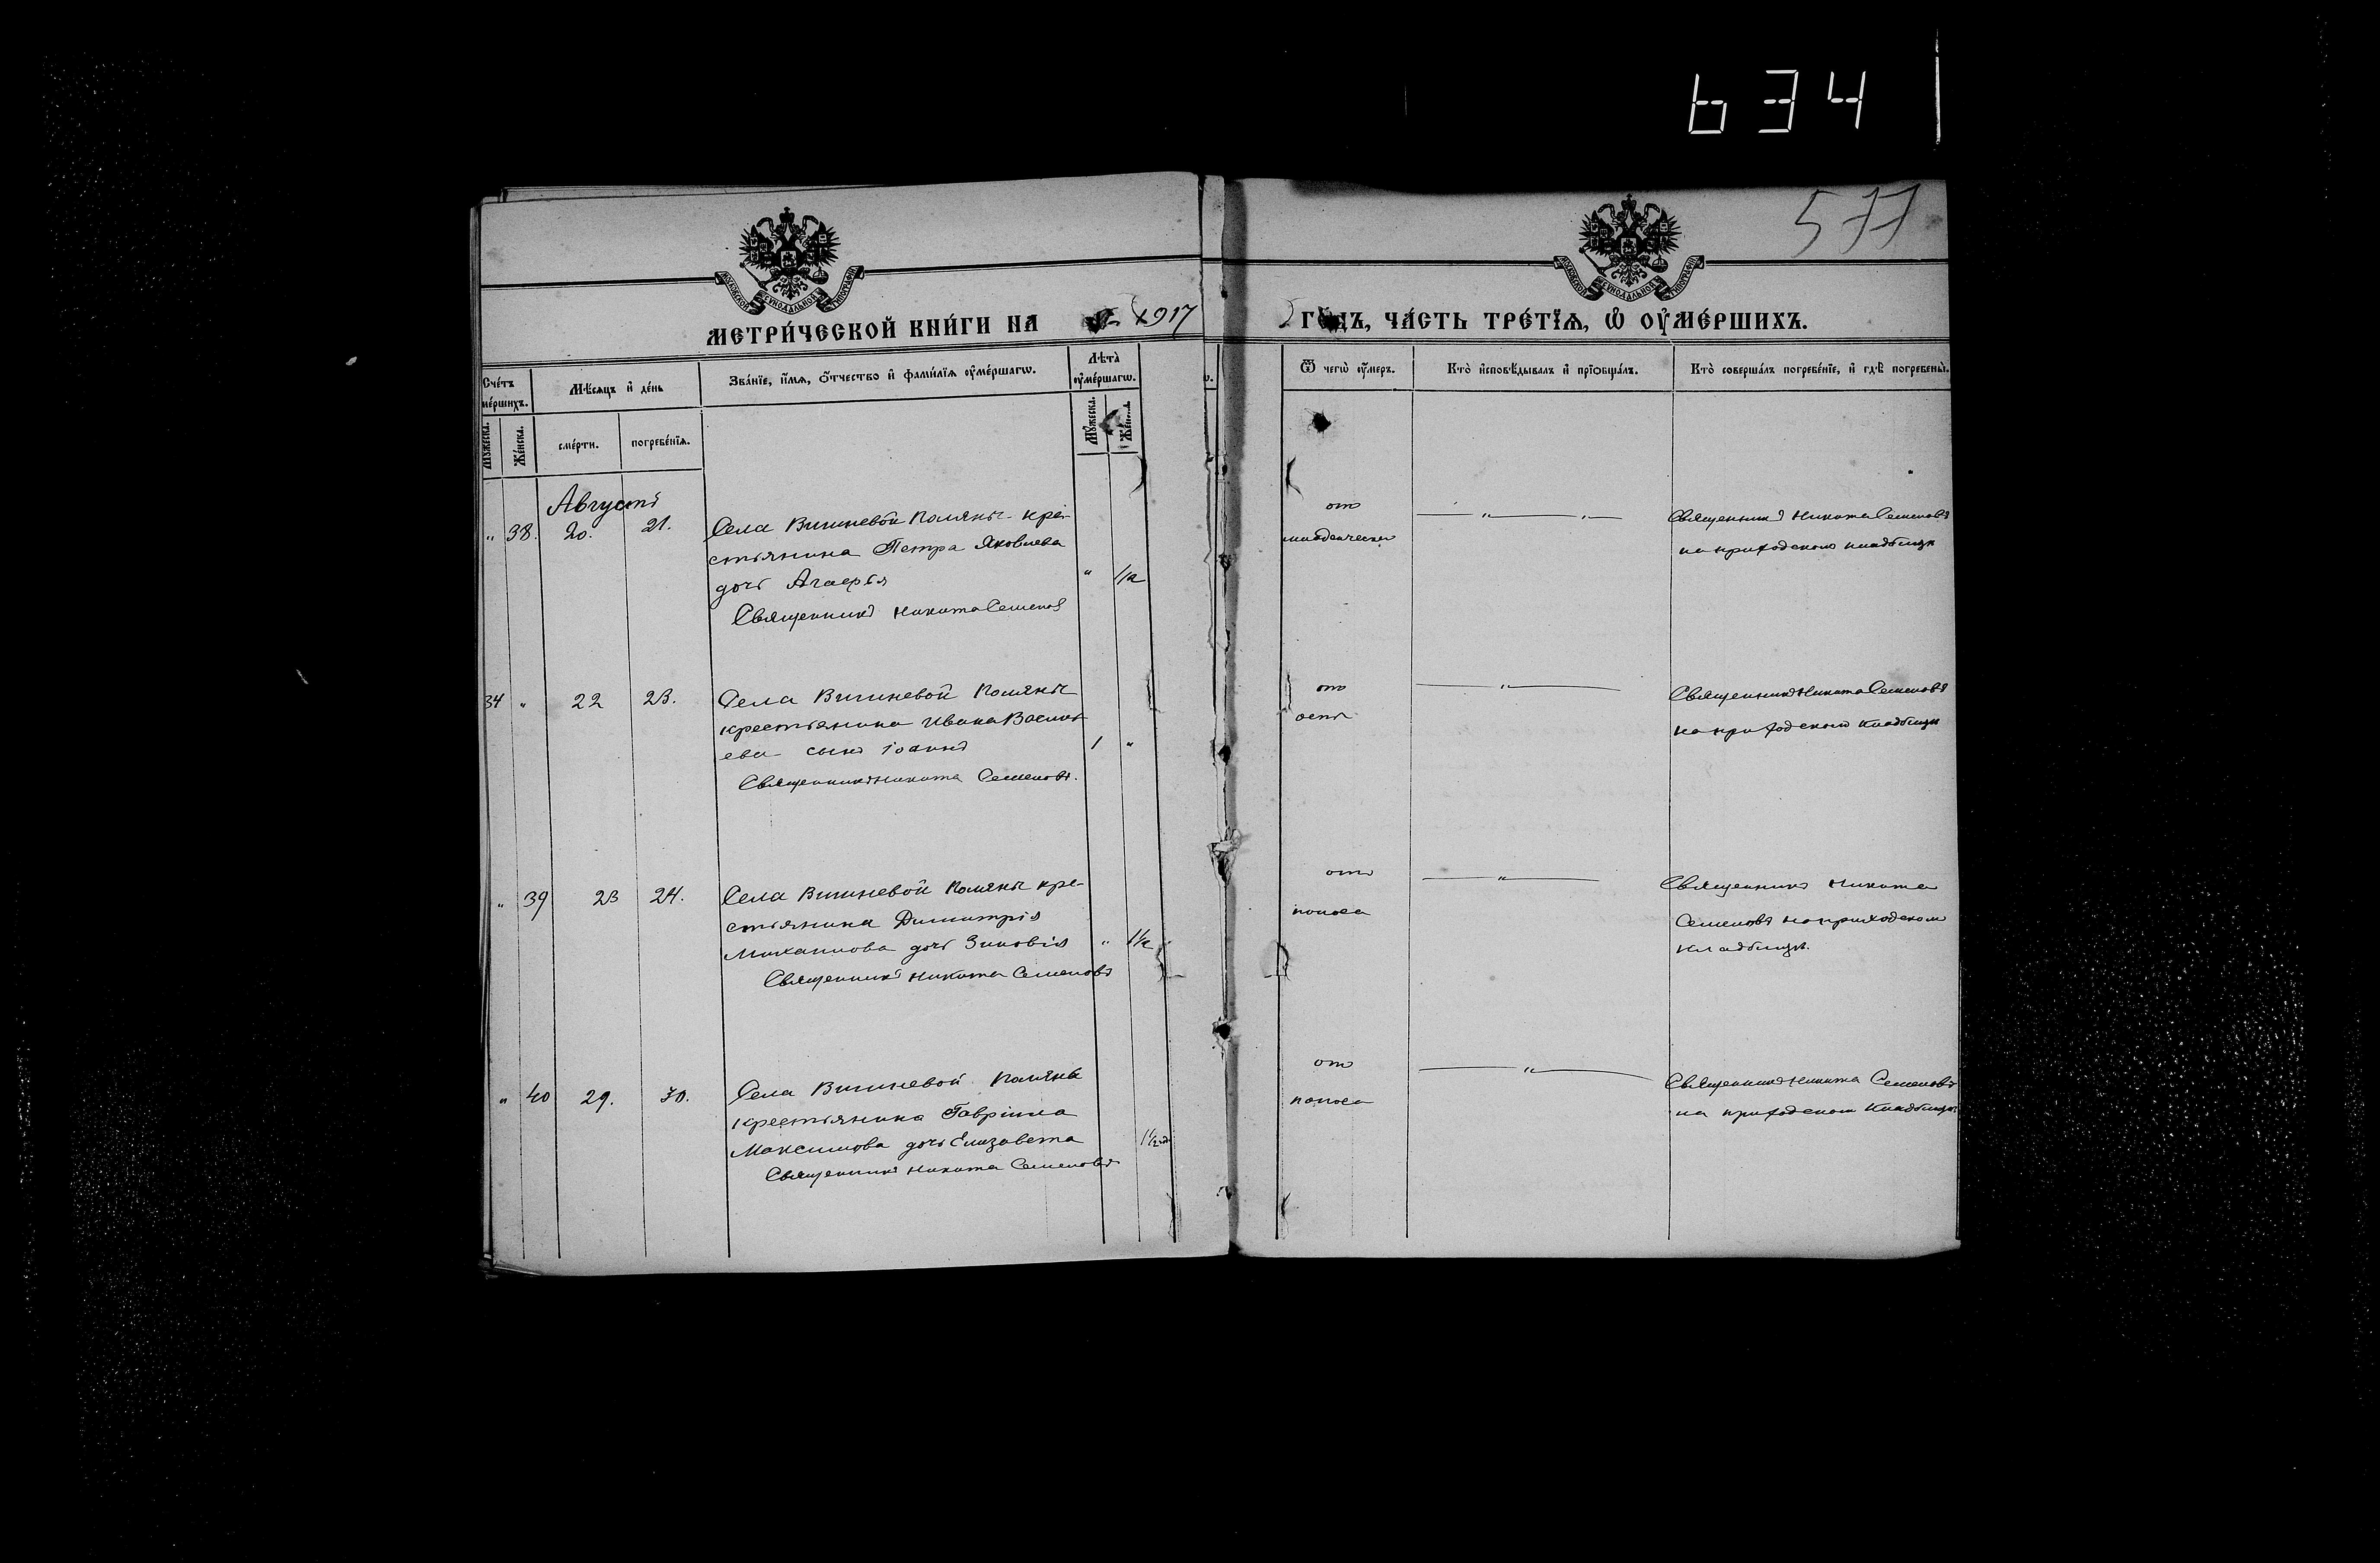 634
577
МОСКОВСКОЙ СѴНОДАЛЬНОЙ ТИПОГРАФІИ
МОСКОВСКОЙ СѴНОДАЛЬНОЙ ТИПОГРАФІИ
МЕТРИ́ЧЕСКОЙ КНИ́ГИ НА 1917 ГО́ДЪ, ЧА́СТЬ ТРЕ́ТЇѦ, Ѡ҆ ОУ҆МЕ́РШИХЪ.
Счетъ
мершихъ.
Мужеска.
Же́нска.
Мѣсяцъ и҆ де́нь
сме́рти.
погребе́нїѧ.
Зва́нїе, и҆́мѧ, ѻ҆́тчество и҆ фами́лїѧ оу҆ме́ршагѡ.
Лѣта̀
оу҆ме́ршагѡ.
Мужеска.
Же́нска.
Ѿ чегѡ̀ оу҆́меръ.
Кто̀ и҆сповѣ́дывалъ и҆ прїѡбща́лъ.
Кто̀ соверша́лъ погребе́нїе, и҆ гдѣ̀ погребены̀.
Августъ
" 38. 20. 21. Села Вишневой Поляны кре-
стьянина Петра Яковлева
дочь Агафія " 1/2
Священникъ Никита Семенов
от
младенческ
—"—
Священникъ Никита Семеновъ
на приходском кладбищѣ
34 " 22 23. Села Вишневой Поляны
крестьянина Ивана Василь
ева сынъ Іоаннъ 1 "
Священникъ Никита Семеновъ.
от
оспы
—"—
Священникъ Никита Семеновъ
на приходском кладбищѣ
" 39 23 24. Села Вишневой Поляны кре-
стьянина Димитрія
Михаилова дочь Зиновія " 1 1/2
Священникъ Никита Семеновъ
от
поноса
—"—
Священникъ Никита
Семеновъ на приходском
кладбищѣ.
" 40 29. 30. Села Вишневой Поляны
крестьянина Гавріила
Максимова дочь Елизавета 1 1/2
Священникъ Никита Семеновъ
от
поноса
—"—
Священникъ Никита Семеновъ
на приходском кладбищѣ